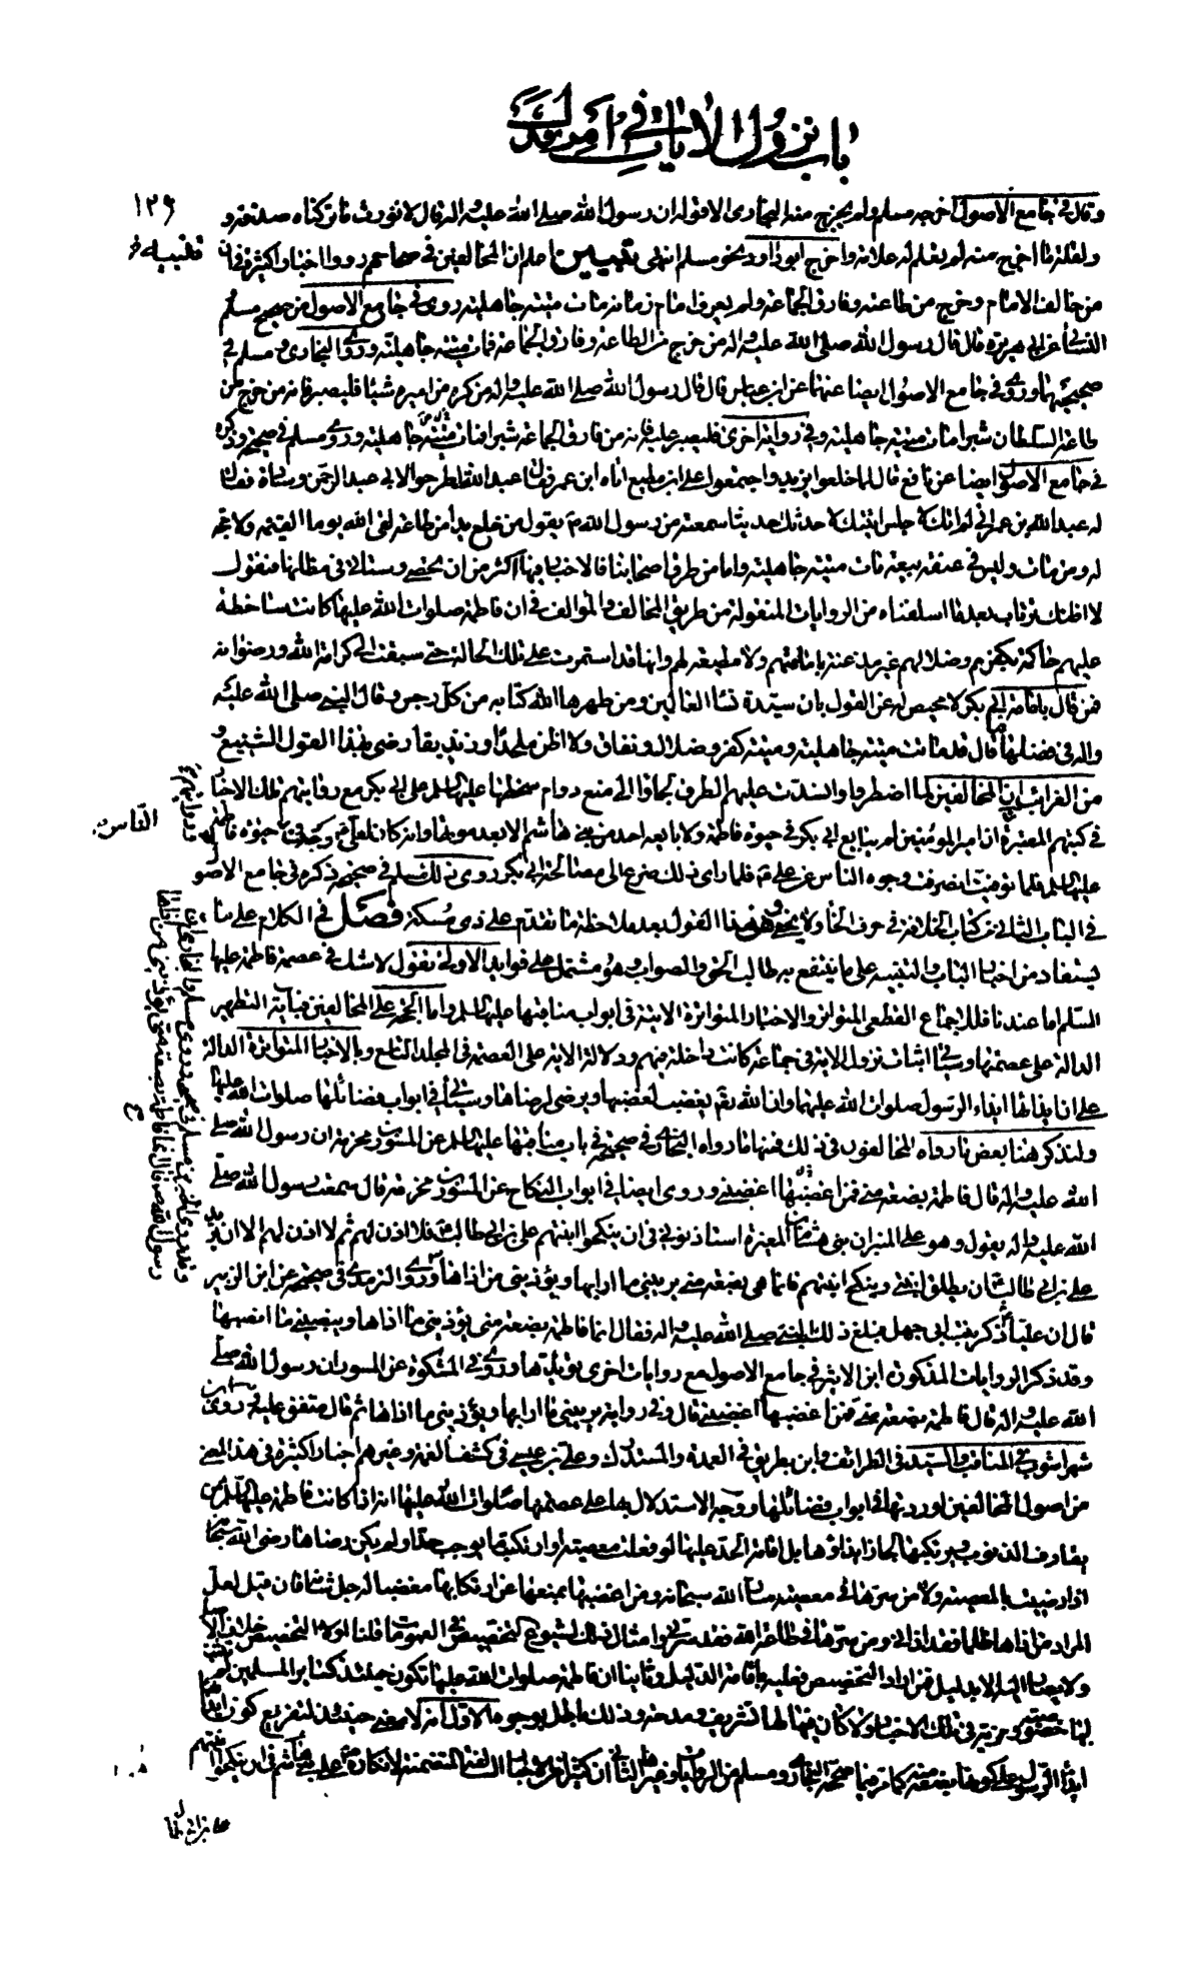 باب نزول الآيات في أمر فدك
١٢٦
وقال في جامع الاصول اخرجه مسلم ولم يخرج منه البخاري الا قوله ان رسول الله صلى الله عليه واله قال لا نورث ما تركناه صدقة و
ولقلة ما اخرج منه لم يعلم له علامة واخرج ابو داود نحو مسلم انتهى تنبيه اعلم ان المخالفين في صحاحهم رووا اخبارا كثيرة في ان
من خالف الامام وخرج من طاعته وفارق الجماعة ولم يعرف امام زمانه مات ميتة جاهلية روى في جامع الاصول من صحيح مسلم
النسائي عن ابي هريرة قال قال رسول الله صلى الله عليه واله من خرج من الطاعة وفارق الجماعة فمات ميتة جاهلية وروى البخاري و مسلم في
صحيحيهما وروى في جامع الاصول ايضا عنهما عن ابن عباس قال قال رسول الله صلى الله عليه واله من كره من اميره شيئا فليصبر فانه من خرج من
طاعة السلطان شبرا مات ميتة جاهلية وفي رواية اخرى فليصبر عليه فانه من فارق الجماعة شبرا فمات فميتة جاهلية وروى مسلم في صحيحه وذكره
في جامع الاصول ايضا عن نافع قال لما خلعوا يزيد واجتمعوا على ابن مطيع اتاه ابن عمر فقال عبد الله اطرحوا لابي عبد الرحمن وسادة فقال
له عبد الله بن عمر اني لم اتك لاجلس اتيتك لاحدثك حديثا سمعته من رسول الله ص يقول من خلع يدا من طاعة لقى الله يوم القيمة ولا حجة
له ومن مات وليس في عنقه بيعة مات ميتة جاهلية واما من طرق اصحابنا فالاخبار فيها اكثر من ان تحصى وستأتي في مظانها فنقول
لا اظنك ترتاب بعد ما اسلفناه من الروايات المنقولة من طريق المخالف والموالف في ان فاطمة صلوات الله عليها كانت ساخطة
عليهم حاكمة بكفرهم وضلالهم غير مذعنة بامامتهم ولا مطيعة لهم وانها قد استمرت على تلك الحالة حتى سبقت الى كرامة الله ورضوانه
فمن قال بامامة ابي بكر لا محيص له عن القول بان سيدة نساء العالمين ومن طهرها الله في كتابه من كل رجس وقال النبي صلى الله عليه
واله في فضلها ما قال قد ماتت ميتة جاهلية وميتة كفر وضلال ونفاق ولا اظن ملحدا وزنديقا رضى بهذا القول الشنيع و
من الغرائب ان المخالفين لما اضطروا وانسدت عليهم الطرق لجأوا الى منع دوام سخطها عليها السلم على ابي بكر مع روايتهم تلك الاخبار
في كتبهم المعتبرة ان امير المؤمنين لم يبايع ابي بكر في حيوة فاطمة ولا بايعه احد من بني هاشم الا بعد موتها وانه كان لعلي وجه في حيوة فاطمة
عليها السلم فلما توفيت انصرفت وجوه الناس عن علي ع فلما راى ذلك ضرع الى مصالحة ابي بكر روى ذلك مسلم في صحيحه وذكره في جامع الاصول
في الباب الثاني من كتاب الخلافة في حرف الخاء ولا يخفى وهن هذا القول بعد ملاحظة ما تقدم على ذي مسكة فصل في الكلام على ما
يستفاد من اخبار الباب والتنبيه على ما ينتفع به طالب الحق والصواب وهو مشتمل على فوايد الاولى نقول لا شك في عصمة فاطمة عليها
السلام اما عندنا فللاجماع القطعي المتواتر والاخبار المتواترة الاتية في ابواب مناقبها عليها السلم واما الحجة على المخالفين فبآية التطهير
الدالة على عصمتها وسيأتي اثبات نزول الاية في جماعة كانت داخلة فيهم ودلالة الاية على العصمة في المجلد التاسع وبالاخبار المتواترة الدالة
على ان ايذاءها ايذاء الرسول صلوات الله عليهما وان الله تعالى يغضب لغضبها ويرضى لرضاها وسيأتي في ابواب فضائلها صلوات الله عليها
ولنذكر هنا بعض ما رواه المخالفون في ذلك فمنها ما رواه البخاري في صحيحه في باب مناقبها عليها السلم عن المسور بن مخرمة ان رسول الله صلى
الله عليه واله قال فاطمة بضعة مني فمن اغضبها اغضبني وروى ايضا في ابواب النكاح عن المسور بن مخرمة قال سمعت رسول الله صلى
الله عليه واله يقول وهو على المنبر ان بني هشام بن المغيرة استاذنوني في ان ينكحوا ابنتهم علي بن ابي طالب ع فلا اذن لهم ثم لا اذن لهم الا ان يريد
علي بن ابي طالب ان يطلق ابنتي وينكح ابنتهم فانما هي بضعة مني يريبني ما ارابها ويؤذيني من اذاها وروى الترمذي في صحيحه عن ابن الزبير
قال ان عليا ذكر بنت ابي جهل فبلغ ذلك النبي صلى الله عليه واله فقال انما فاطمة بضعة مني يؤذيني ما اذاها وينصبني ما انصبها
وقد ذكر الروايات المذكورة ابن الاثير في جامع الاصول مع روايات اخرى تؤيدها وروى في المشكوة عن المسور ان رسول الله صلى
الله عليه واله قال فاطمة بضعة مني فمن اغضبها اغضبني قال وفي رواية يريبني ما ارابها ويؤذيني ما اذاها ثم قال متفق عليه وروى ابن
شهراشوب في المناقب والسيد في الطرائف وابن بطريق في العمدة والمستدرك وعلي بن عيسى في كشف الغمة وغيرهم اخبارا كثيرة في هذا المعنى
من اصول المخالفين اوردتها في ابواب فضائلها ووجه الاستدلال بها على عصمتها صلوات الله عليها انه اذا كانت فاطمة عليها السلم ممن
يقارف الذنوب ويرتكبها لجاز ايذاؤها بل اقامة الحد عليها لو فعلت معصية وارتكبت ما يوجب حدا ولم يكن رضاها رضى الله سبحانه
اذا رضيت بالمعصية ولا من سرها في معصية سارا الله سبحانه ومن اغضبها بمنعها عن ارتكابها مغضبا له جل شانه فان قيل لعل
المراد من اذاها ظلما فقد اذاني ومن سرها في طاعة الله فقد سرني وامثال ذلك لشيوع التخصيص في العمومات قلنا اولا التخصيص خلاف الاصل
ولا يصار اليه الا بدليل فمن اراد التخصيص فعليه باقامة الدليل وثانيا ان فاطمة صلوات الله عليها تكون حينئذ كسائر المسلمين لم تثبت
لها خصوصية ومزية في تلك الاخبار ولا كان فيها لها تشريف ومدحة وذلك باطل بوجوه الاول انه لا معنى حينئذ لتفريع كون ايذائها
ايذاء الرسول على كونها بضعة منه كما مر فيما صححه البخاري ومسلم من الروايات وغيرها الثاني ان كثيرا من الاخبار السالفة المتضمنة لانكاره ص على بني هاشم في ان ينكحوا ابنتهم
علي بن ابي طالب
الناس